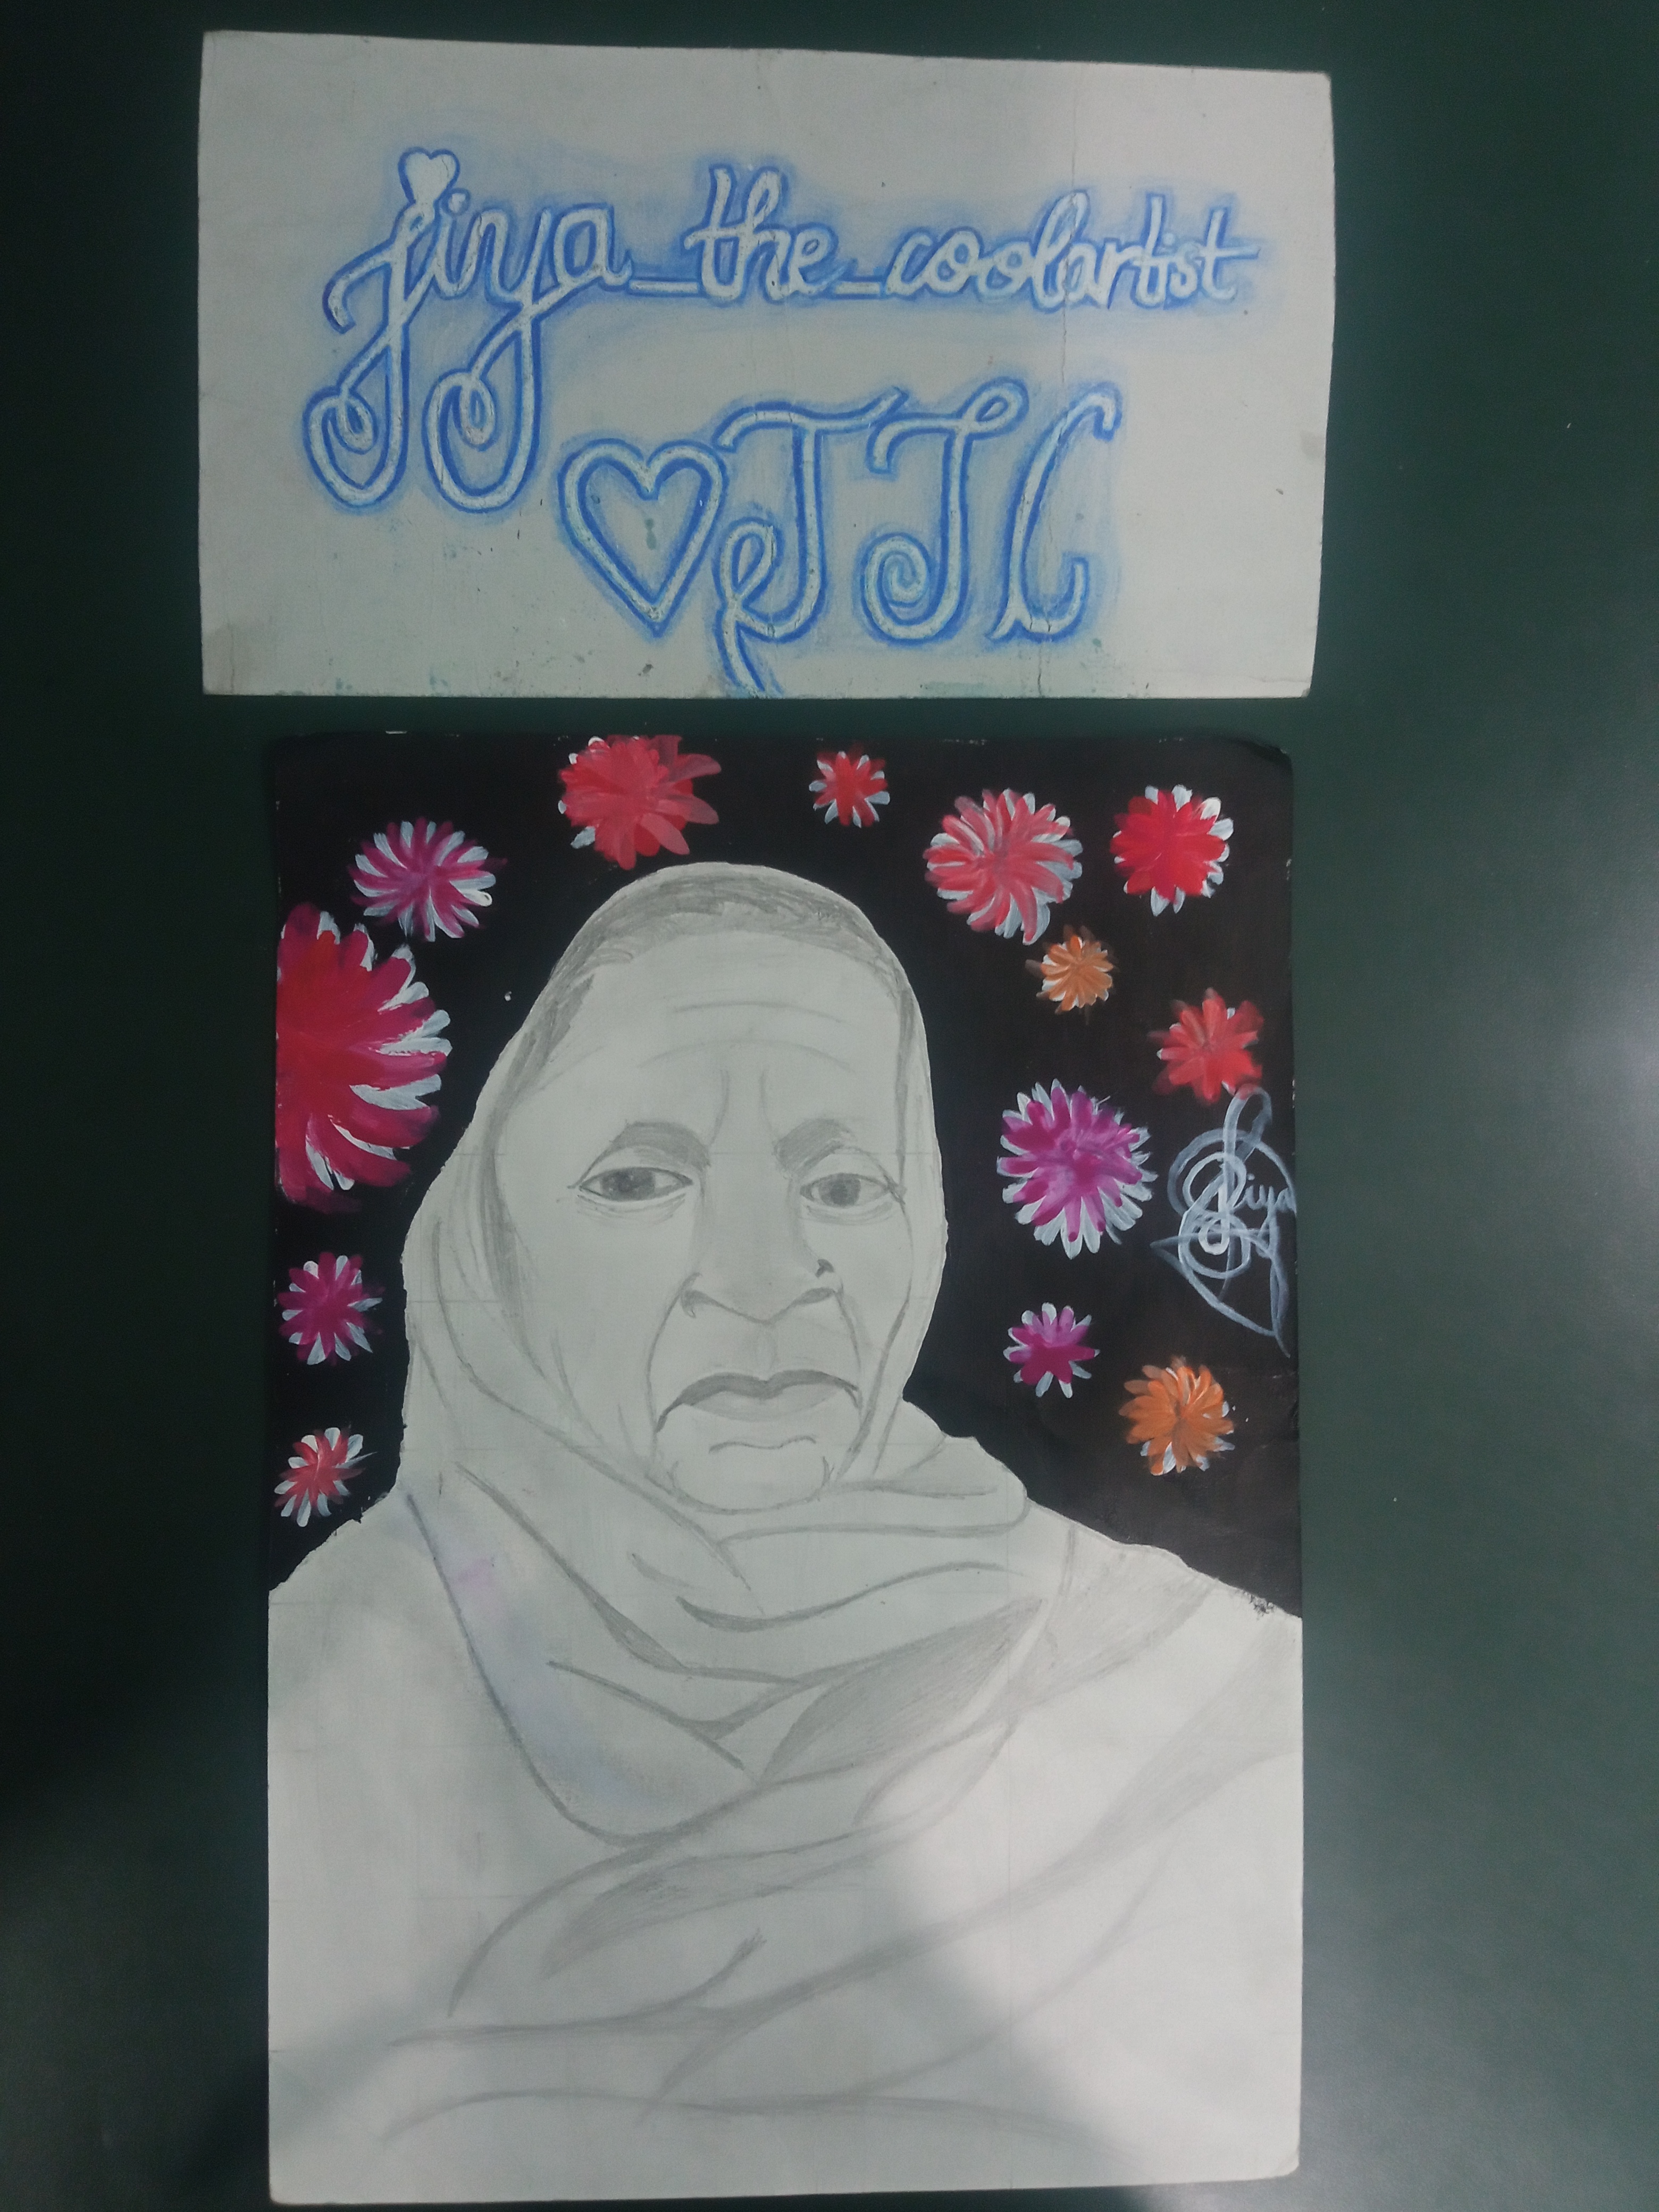 jiya_the_coolartist
♡JJC
Jiya